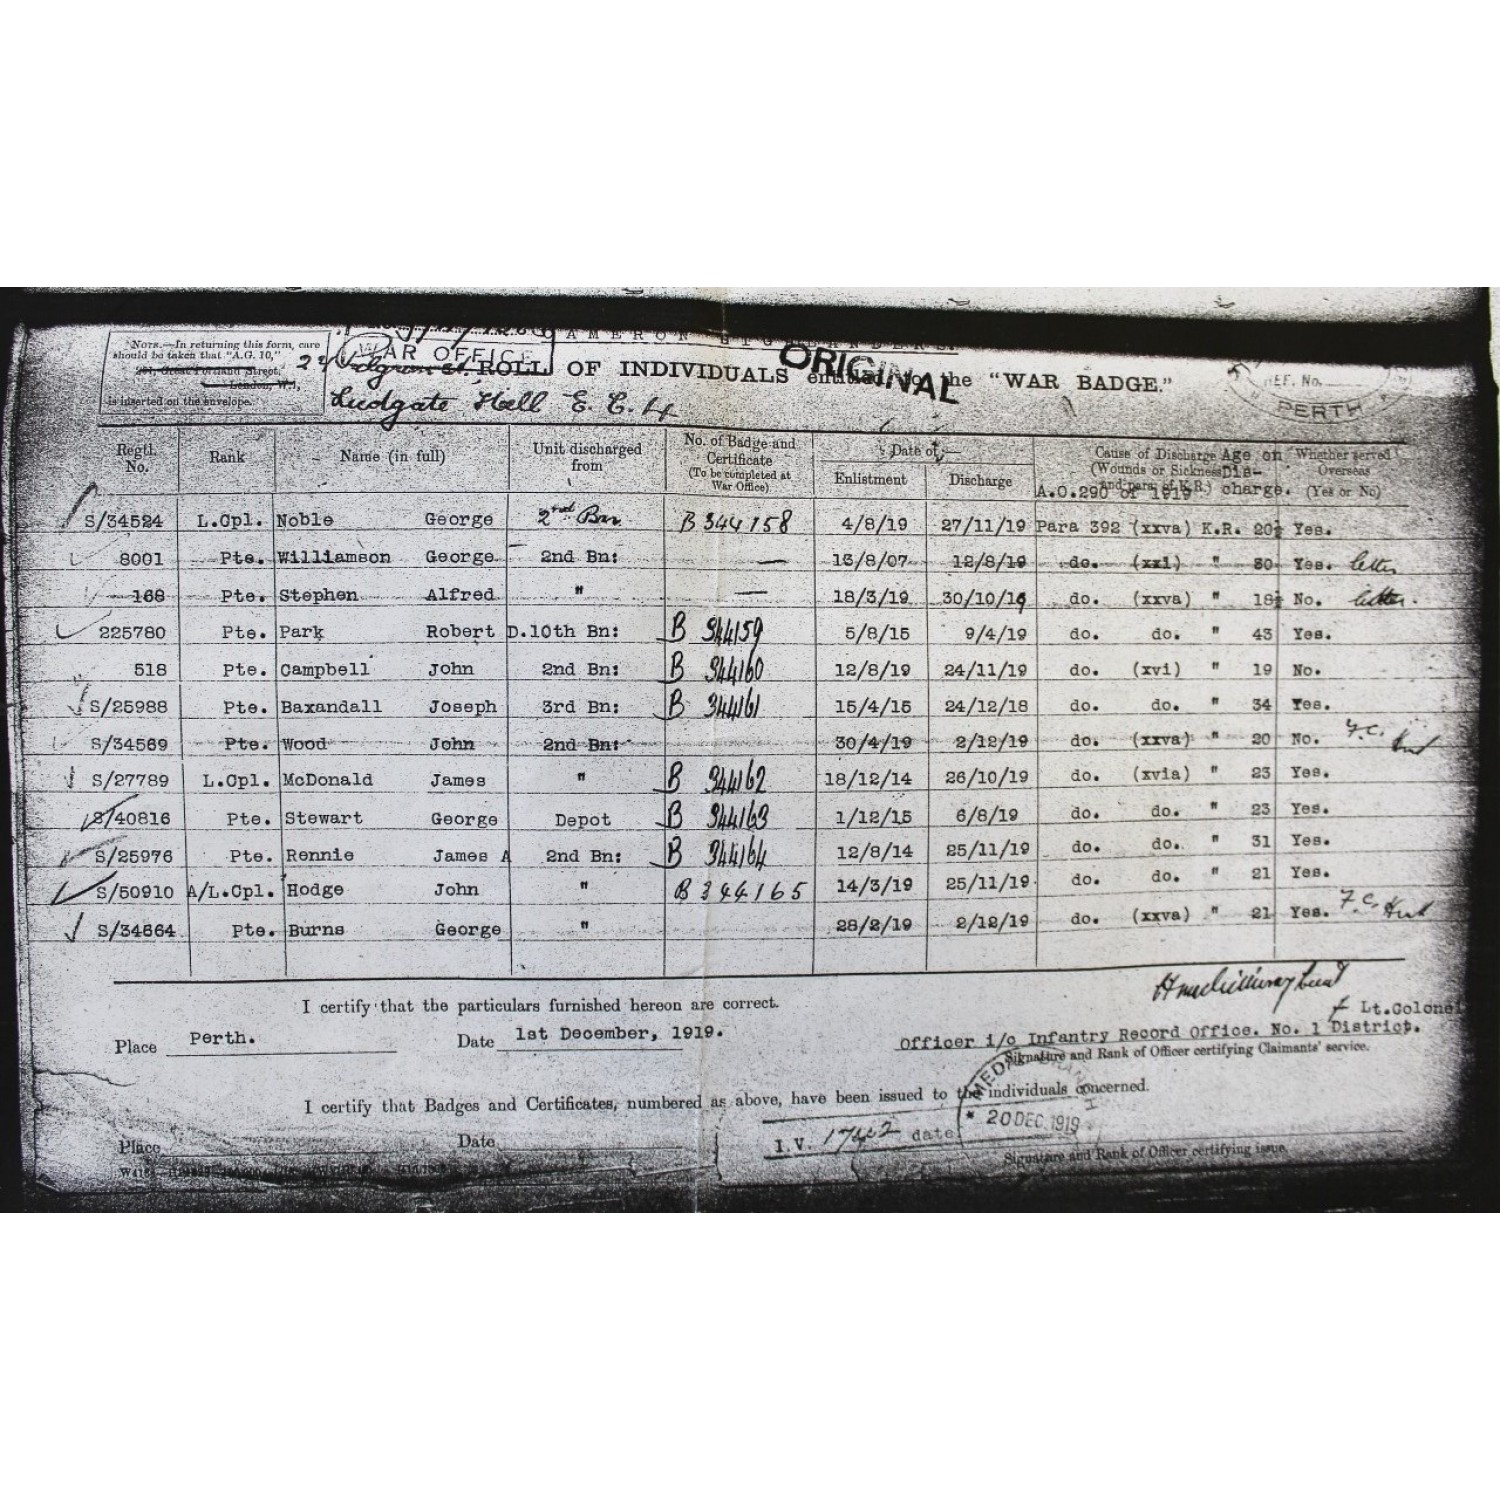 CAMERON HIGHLANDERS.
NOTE.—In returning this form, care
should be taken that "A.G. 10,"
Great Portland Street,
London, W.1,
is inserted on the envelope.
WAR OFFICE
ORIGINAL
ROLL OF INDIVIDUALS entitled to the "WAR BADGE."
Ludgate Hill E. C. 4
REF. No.
PERTH
Regtl. No. Rank Name (in full) Unit discharged from No. of Badge and Certificate (To be completed at War Office) Date of:— Enlistment Discharge Cause of Discharge (Wounds or Sickness and para. of K.R.) A.O.290 of 1919 Age on Dis- charge. Whether served Overseas (Yes or No)
S/34524 L.Cpl. Noble George 2nd Bn. B 344158 4/8/19 27/11/19 Para 392 (xxva) K.R. 20½ Yes.
8001 Pte. Williamson George 2nd Bn: — 13/8/07 12/8/19 do. (xxi) " 30 Yes. letter
168 Pte. Stephen Alfred " — 18/3/19 30/10/19 do. (xxva) " 18½ No. letter.
225780 Pte. Park Robert D.10th Bn: B 344159 5/8/15 9/4/19 do. do. " 43 Yes.
518 Pte. Campbell John 2nd Bn: B 344160 12/8/19 24/11/19 do. (xvi) " 19 No.
S/25988 Pte. Baxandall Joseph 3rd Bn: B 344161 15/4/15 24/12/18 do. do. " 34 Yes.
S/34569 Pte. Wood John 2nd Bn: 30/4/19 2/12/19 do. (xxva) " 20 No. F.C.
S/27789 L.Cpl. McDonald James " B 344162 18/12/14 26/10/19 do. (xvia) " 23 Yes.
S/40816 Pte. Stewart George Depot B 344163 1/12/15 6/8/19 do. do. " 23 Yes.
S/25976 Pte. Rennie James A 2nd Bn: B 344164 12/8/14 25/11/19 do. do. " 31 Yes.
S/50910 A/L.Cpl. Hodge John " B 344165 14/3/19 25/11/19 do. do. " 21 Yes.
S/34664 Pte. Burns George " 28/2/19 2/12/19 do. (xxva) " 21 Yes. F.C.
I certify that the particulars furnished hereon are correct.
Lt.Colonel
Place Perth. Date 1st December, 1919. Officer i/c Infantry Record Office. No. 1 District.
Signature and Rank of Officer certifying Claimants' service.
I certify that Badges and Certificates, numbered as above, have been issued to the individuals concerned.
I.V. 17442 date * 20 DEC. 1919
Place Date
Signature and Rank of Officer certifying issue.